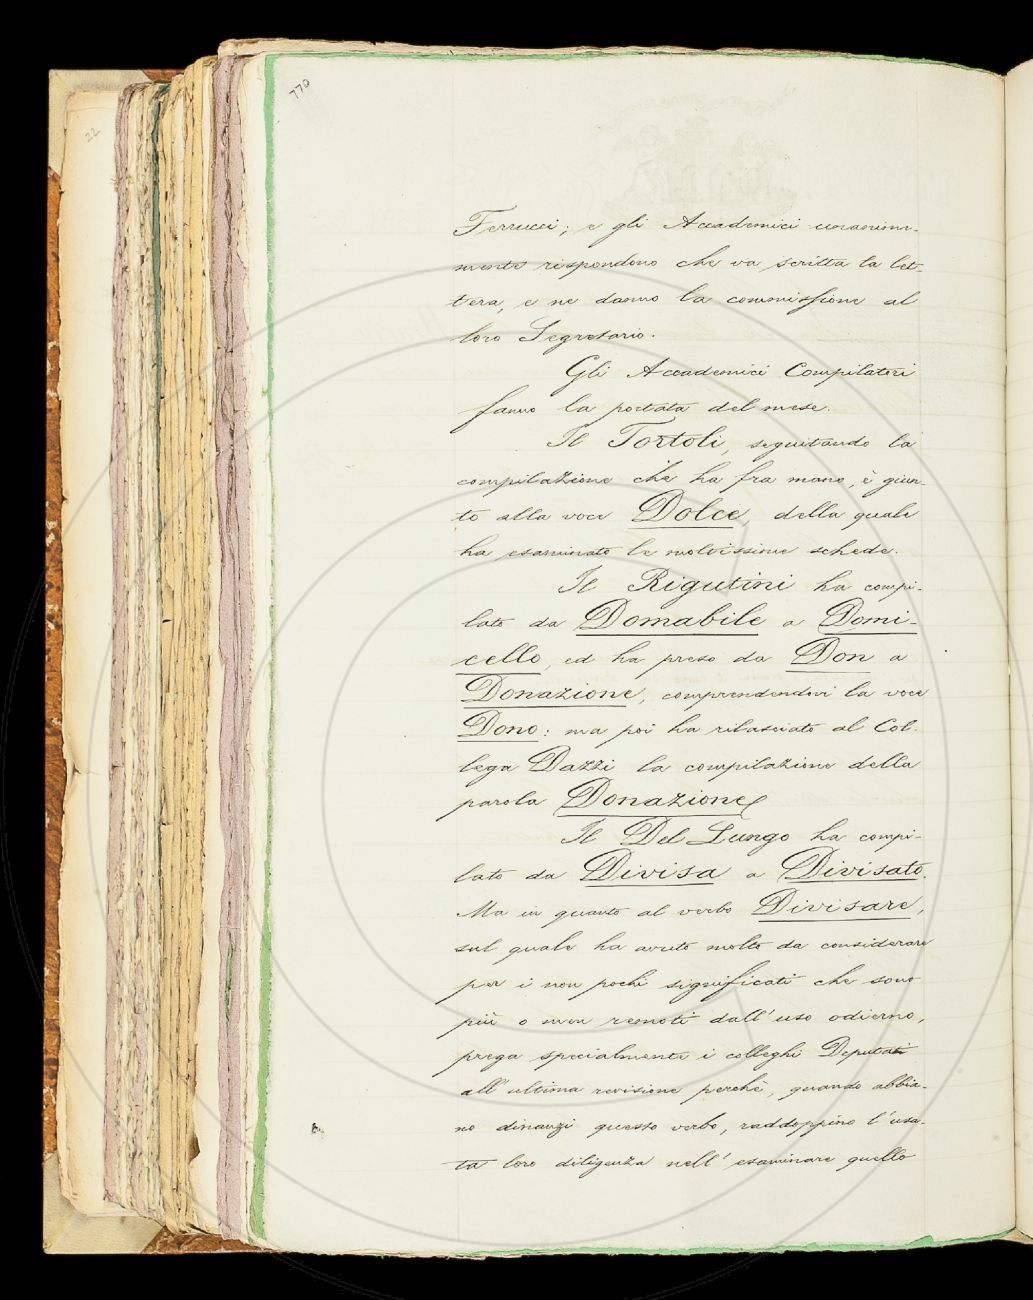 770
22
Ferrucci; e gli Accademici unanime-
mente rispondono che va scritta la let-
tera, e ne danno la commissione al
loro Segretario.
Gli Accademici Compilatori
fanno la portata del mese.
Il Tortoli, seguitando la
compilazione che ha fra mano, è giun-
to alla voce Dolce, della quale
ha esaminato le moltissime schede.
Il Rigutini ha compi-
lato da Domabile a Domi-
cello, ed ha preso da Don a
Donazione, comprendendovi la voce
Dono: ma poi ha rilasciato al Col-
lega Dazzi la compilazione della
parola Donazione
Il Del Lungo ha compi-
lato da Divisa a Divisato.
Ma in quanto al verbo Divisare,
sul quale ha avuto molto da considerare
per i non pochi significati che sono
più o men remoti dall'uso odierno,
prega specialmente i colleghi Deputati
all'ultima revisione perchè, quando abbia-
no dinanzi questo verbo, raddoppino l'usa-
ta loro diligenza nell'esaminare quello